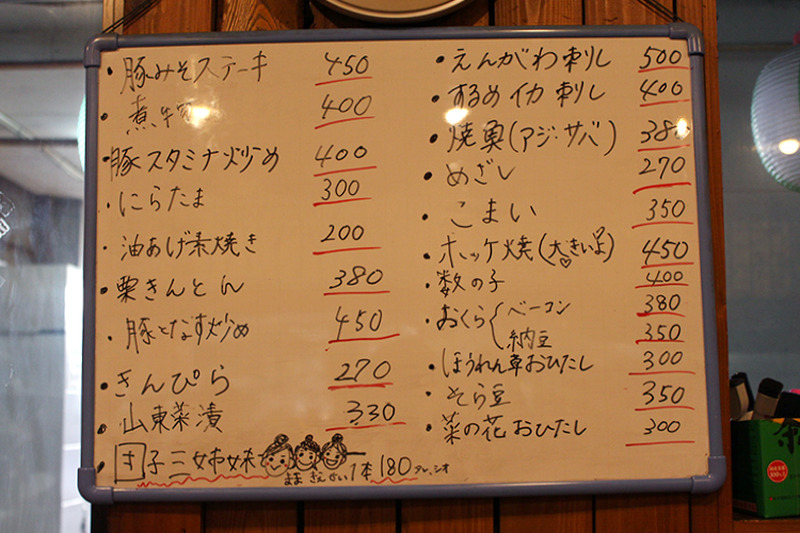 ・豚みそステーキ 450
・煮 400
・豚スタミナ炒め 400
・にらたま 300
・油あげ素焼き 200
・栗きんとん 380
・豚となす炒め 450
・きんぴら 270
・山東菜漬 330
・子三姉妹 1本180
・えんがわ刺し 500
・するめイカ刺し 400
・焼魚(アジ・サバ) 380
・めざし 270
・こまい 350
・ホッケ焼(大きいよ♡) 450
・数の子 400
・おくら{ベーコン 380
納豆 350
・ほうれん草おひたし 300
・そら豆 350
・菜の花おひたし 300